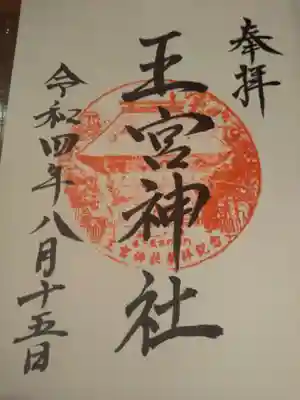 奉拝
王宮神社
令和四年八月十五日